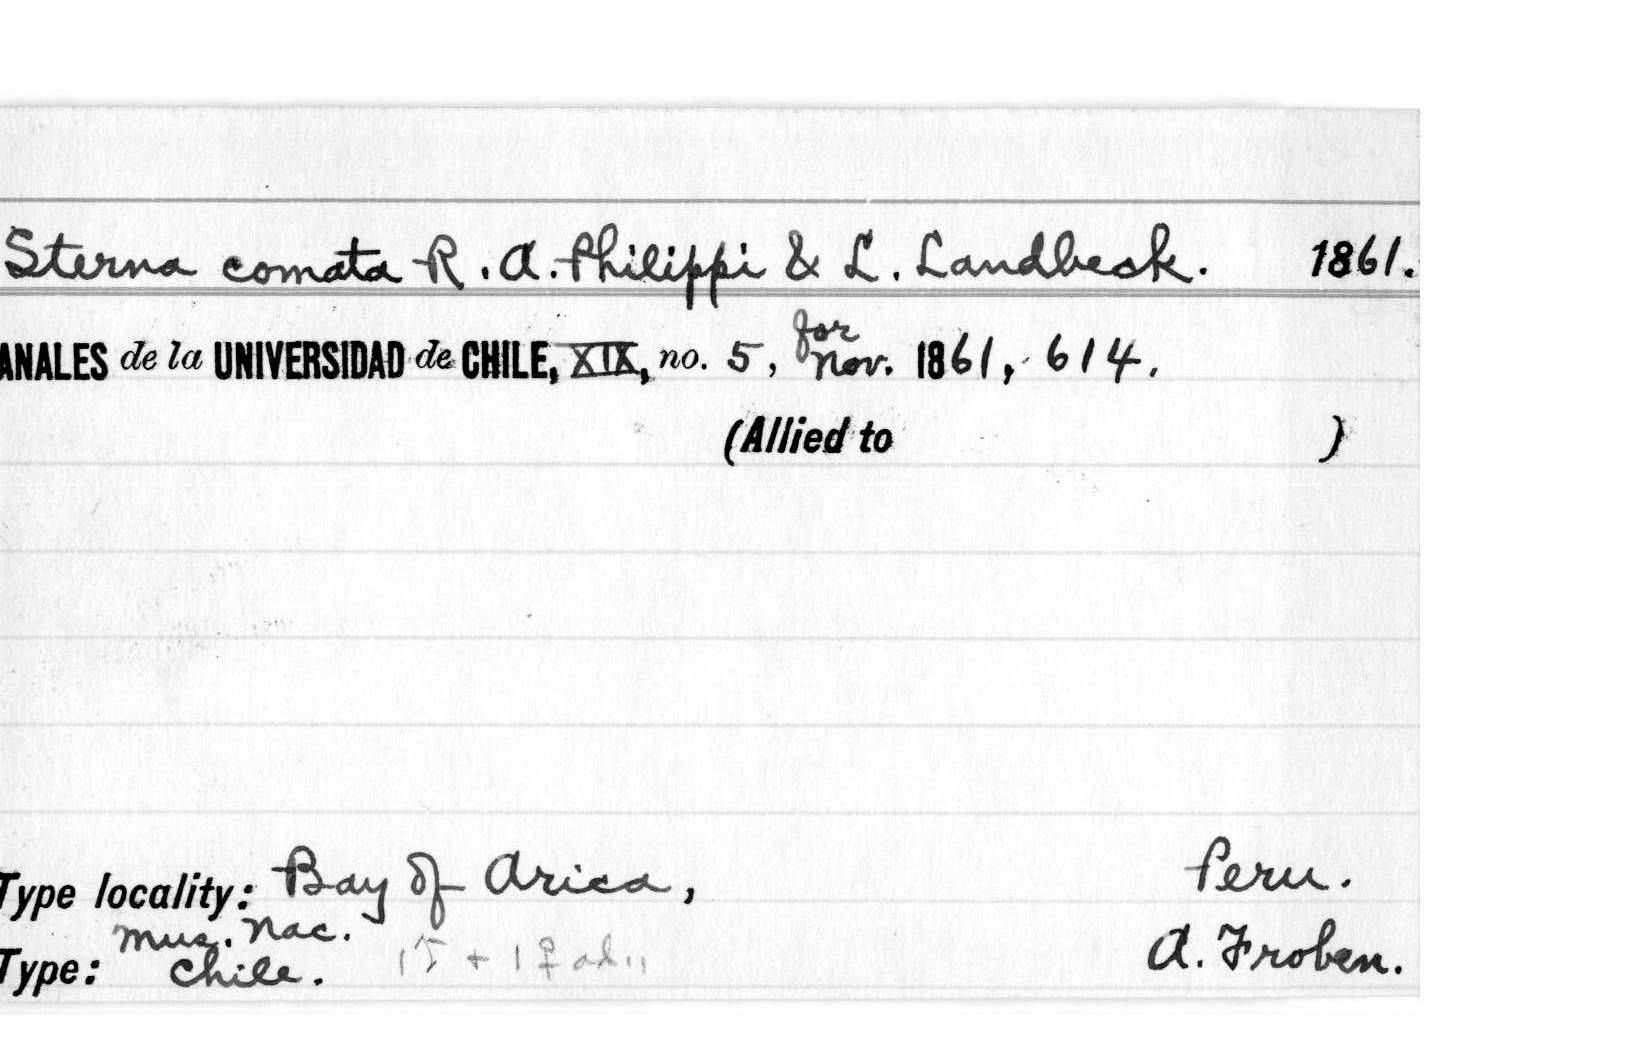 Sterna comata R. A. Philippi & L. Landbeck. 1861.
ANALES de la UNIVERSIDAD de CHILE, XIX, no. 5, for Nov. 1861, 614.
(Allied to )
Type locality: Bay of Arica, Peru.
Mus. Nac.
Type: Chile. 1 ♂ + 1 ♀ ad., A. Froben.